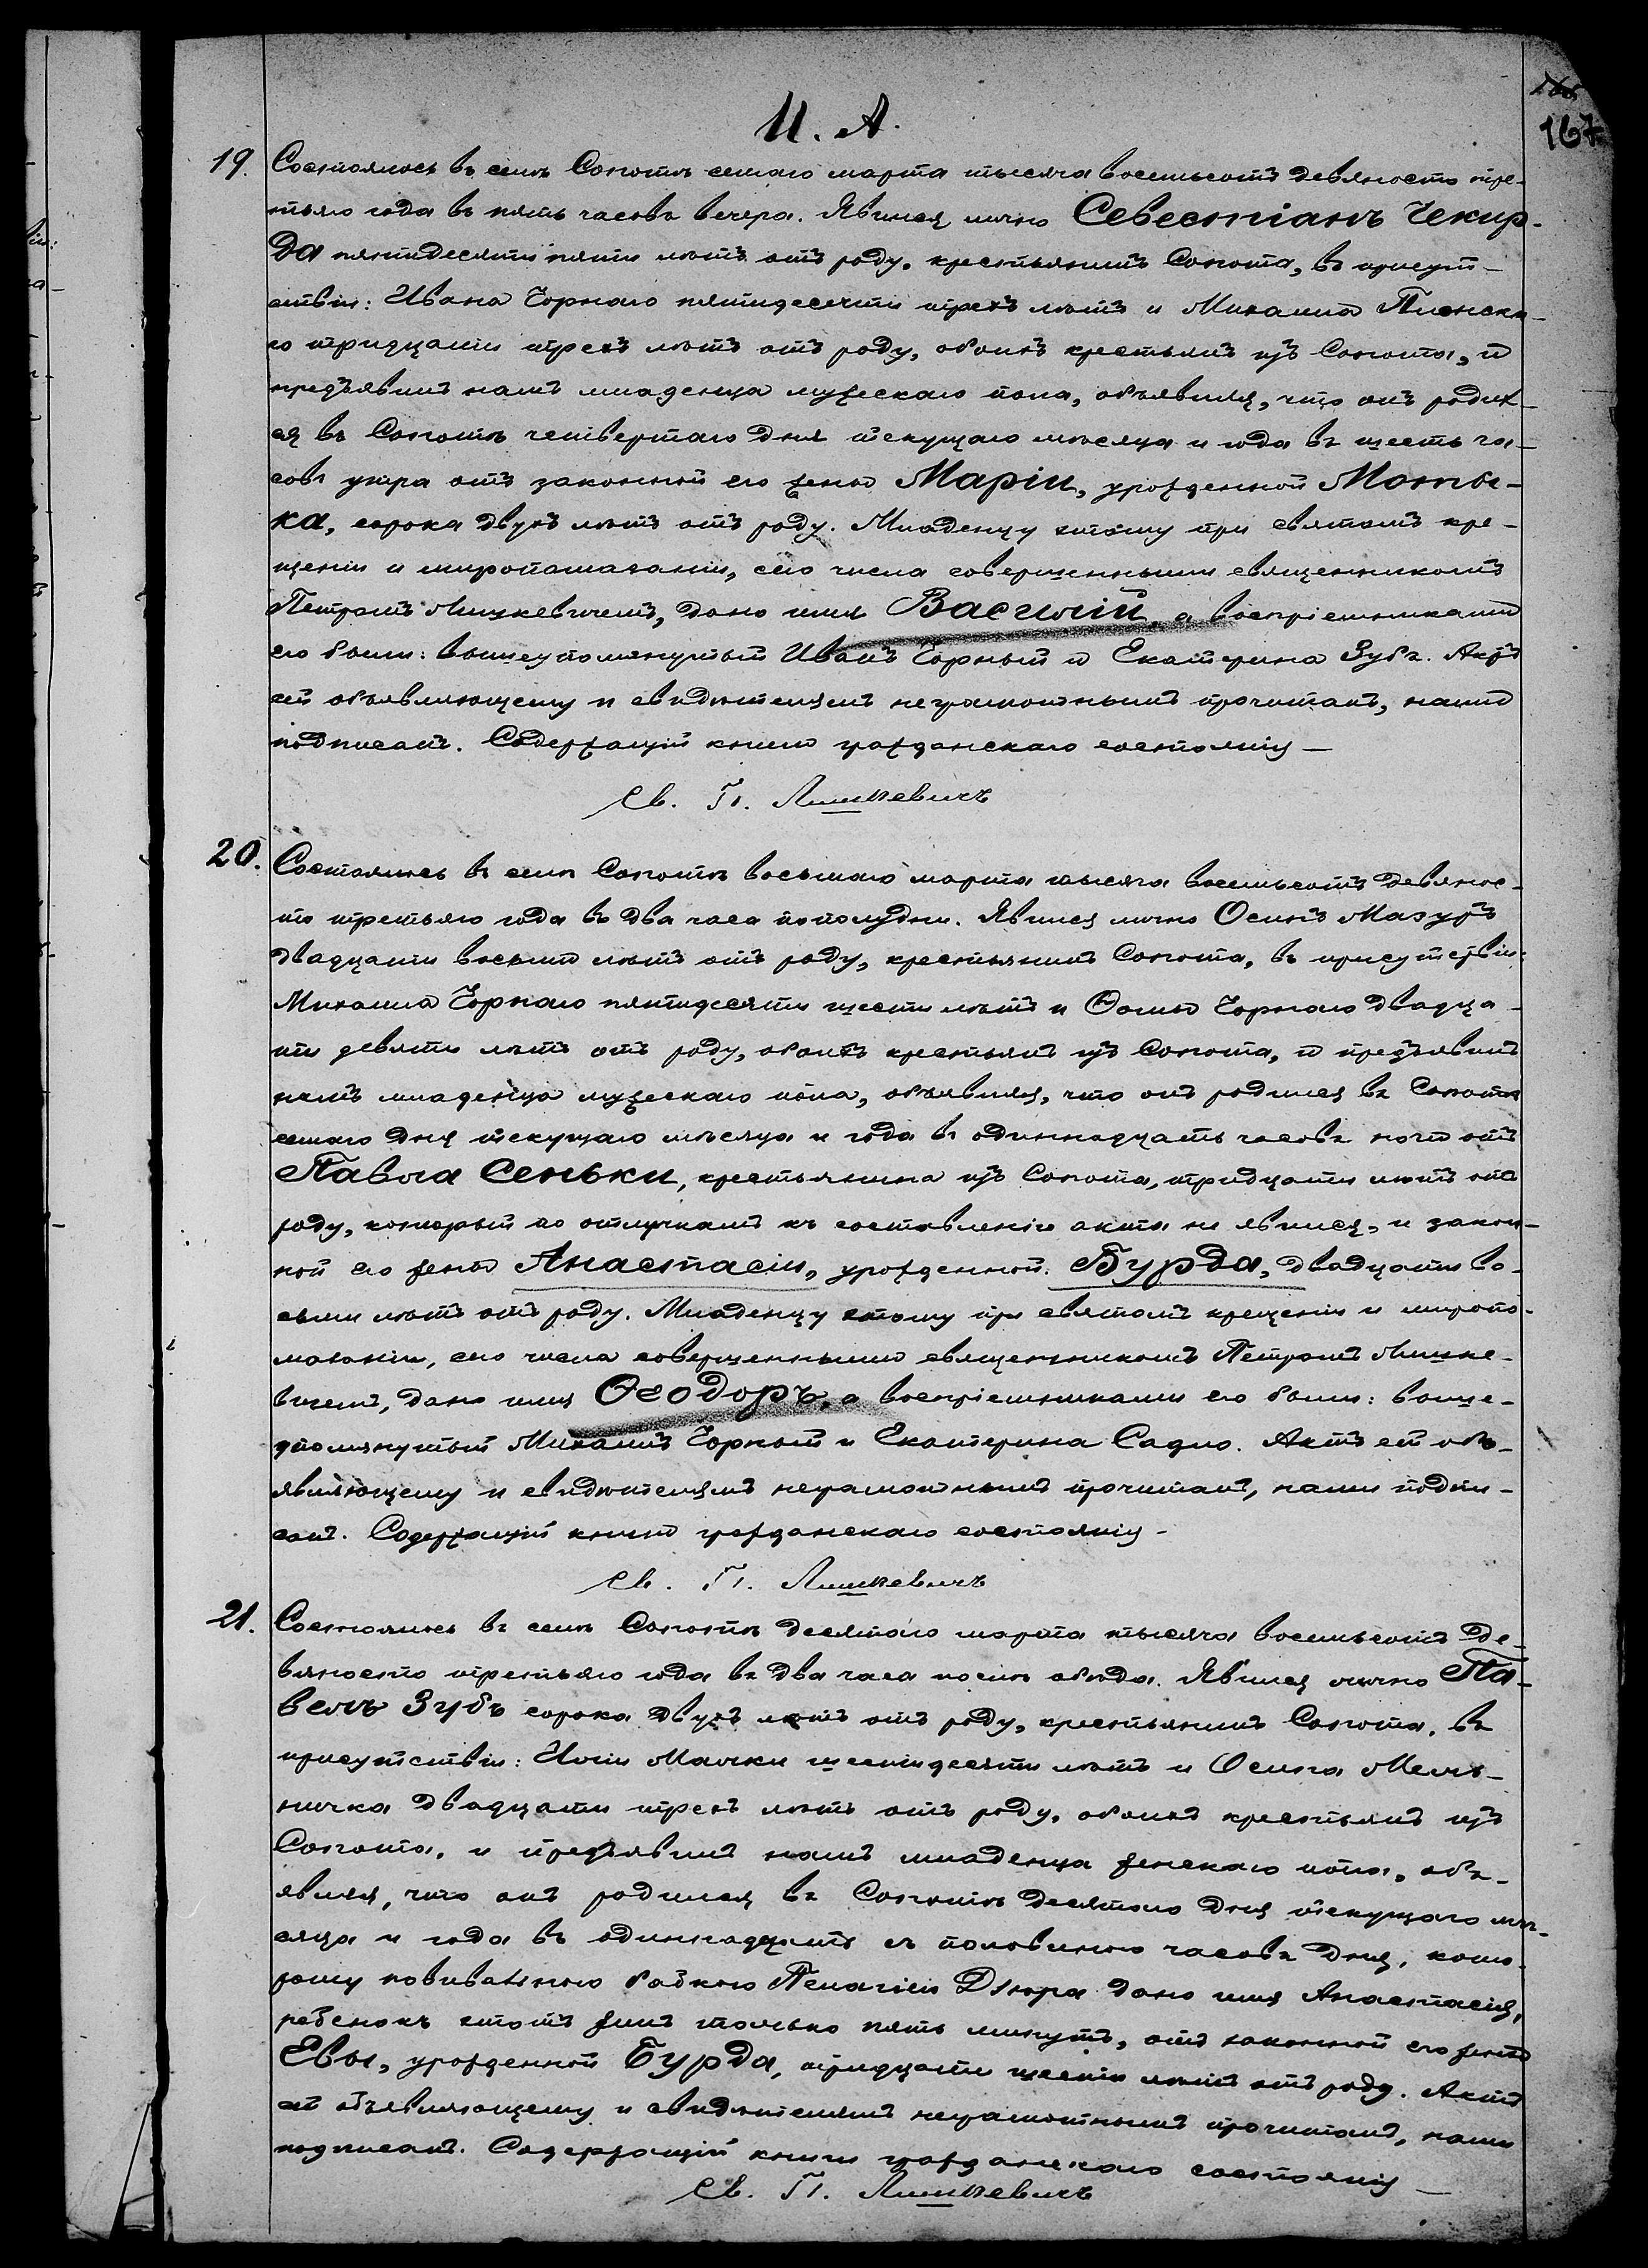 167
И. А.
19. Состоялось въ селѣ Сопотѣ седьмаго марта тысяча восемьсотъ девяносто тре-
тьяго года въ пять часовъ вечера. Явился лично Севестіанъ Чекир-
да пятидесяти пяти лѣтъ отъ роду, крестьянинъ Сопота, въ присут-
ствіи: Ивана Чорнаго пятидесяти трехъ лѣтъ и Михаила
го тридцати трехъ лѣтъ отъ роду, обоихъ крестьянъ изъ Сопота, и
предъявилъ намъ младенца мужескаго пола, объявляя, что онъ родил-
ся въ Сопотѣ четвертаго дня текущаго мѣсяца и года въ шесть ча-
совъ утра отъ законной его жены Маріи, урожденной Моты-
ка, сорока двухъ лѣтъ отъ роду. Младенцу этому при святомъ кре-
щеніи и миропомазаніи, сего числа совершенными священникомъ
Петромъ Лишкевичемъ, дано имя Василій, а воспріемниками
его были: вышеупомянутый Иванъ Чорный и Екатерина Зубъ. Актъ
сей объявляющему и свидѣтелямъ неграмотнымъ прочитанъ, нами
подписанъ. Содержащій книги гражданскаго состоянія —
Св. П. Лишкевичъ
20. Состоялось въ селѣ Сопотѣ восьмаго марта тысяча восемьсотъ девянос-
то третьяго года въ два часа пополудни. Явился лично Осипъ Мазуръ
двадцати восьми лѣтъ отъ роду, крестьянинъ Сопота, въ присутствіи:
Михаила Чорнаго пятидесяти шести лѣтъ и Ѳомы Чорнаго двадца-
ти девяти лѣтъ отъ роду, обоихъ крестьянъ изъ Сопота, и предъявилъ
намъ младенца мужескаго пола, объявляя, что онъ родился въ Сопотѣ
седьмаго дня текущаго мѣсяца и года въ одиннадцать часовъ ночи отъ
Павла Сеньки, крестьянина изъ Сопота, тридцати лѣтъ отъ
роду, который по отлучкамъ къ составленію акта не явился, и закон-
ной его жены Анастасіи, урожденной Бурда, двадцати во-
сьми лѣтъ отъ роду. Младенцу этому при святомъ крещеніи и миропо-
мазаніи, сего числа совершенными священникомъ Петромъ Лишке-
вичемъ, дано имя Ѳеодоръ, а воспріемниками его были: выше-
упомянутый Михаилъ Чорный и Екатерина Садло. Актъ сей объ-
являющему и свидѣтелямъ неграмотнымъ прочитанъ, нами подпи-
санъ. Содержащій книги гражданскаго состоянія —
Св. П. Лишкевичъ
21. Состоялось въ селѣ Сопотѣ десятаго марта тысяча восемьсотъ де-
вяносто третьяго года въ два часа послѣ обѣда. Явился лично Па-
велъ Зубъ сорока двухъ лѣтъ отъ роду, крестьянинъ Сопота, въ
присутствіи: Иліи Малки шестидесяти лѣтъ и Осипа Мель-
ничка двадцати трехъ лѣтъ отъ роду, обоихъ крестьянъ изъ
Сопота, и предъявилъ намъ младенца женскаго пола, объ-
являя, что онъ родился въ Сопотѣ десятаго дня текущаго мѣ-
сяца и года въ одиннадцать съ половиною часовъ дня, кото-
рому повивальною бабкою Пелагіею Дзюра дано имя Анастасія,
ребенокъ этотъ жилъ только пять минутъ, отъ законной его жены
Евы, урожденной Бурда, тридцати шести лѣтъ отъ роду. Актъ
сей объявляющему и свидѣтелямъ неграмотнымъ прочитанъ, нами
подписанъ. Содержащій книги гражданскаго состоянія —
Св. П. Лишкевичъ